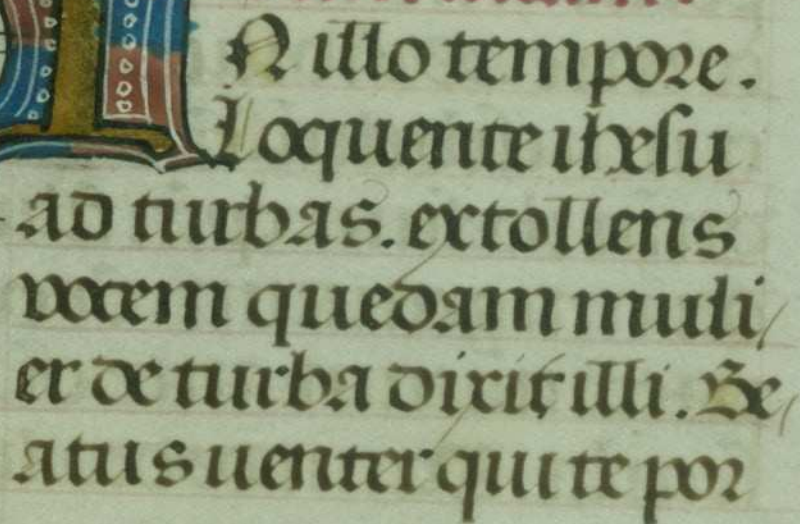 IN illo tempore.
Loquente ihesu
ad turbas. extollens
vocem quedam muli/
er de turba dixit illi. Be/
atus uenter qui te por